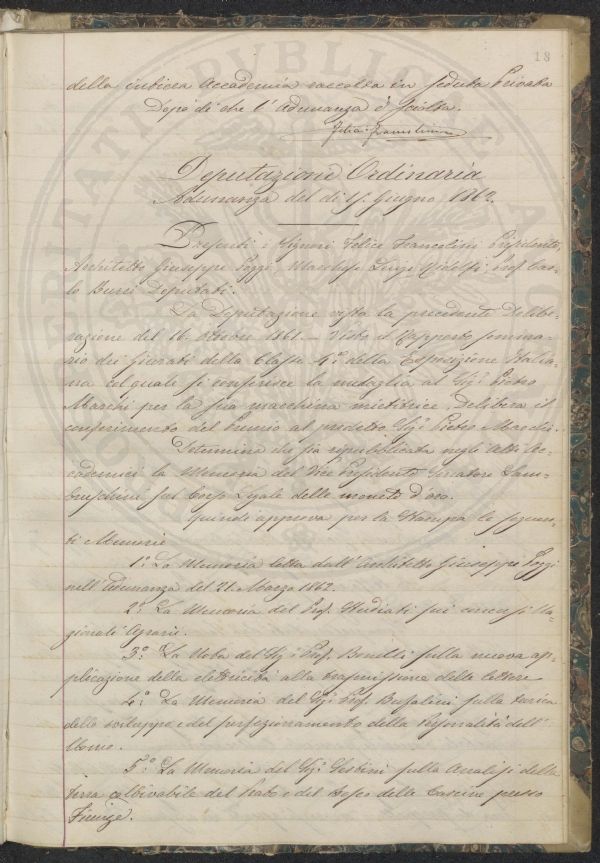 18
della istessa Accademia raccolta in seduta Privata
Dopo di che l'adunanza è sciolta.
Deputazione Ordinaria
Adunanza del di 15. Giugno 1862.
Presenti i Signori Felice Francolini Presidente,
Architetto Giuseppe Poggi, Marchese Luigi Ridolfi, Prof. Car-
lo Burci Deputati.
La Deputazione vista la precedente Delibe-
razione del 16. Ottobre 1861. — Visto il Rapporto somma-
rio dei Giurati della Classe 4.ª della Esposizione Italia-
na col quale si conferisce la medaglia al Sig.r Pietro
Marchi per la sua macchina mietitrice, Delibera il
conferimento del Premio al prodetto Sig.r Pietro Marchi.
Determina che sia ripubblicata negli Atti Ac-
cademici la Memoria del Vice Presidente Senatore Lam-
bruschini sul Corso Legale delle monete d'oro.
Quindi approva per la Stampa le seguen-
ti Memorie
1.º La Memoria letta dall'Architetto Giuseppe Poggi
nell'Adunanza del 21. Marzo 1862.
2.º La Memoria del Prof. Studiati sui concorsi Re-
gionali Agrarii.
3.º La Nota del Sig.r Prof. Bonelli sulla nuova ap-
plicazione della elettricità alla trasmissione delle lettere
4.º La Memoria del Sig.r Prof. Bufalini sulla teorica
dello sviluppo e del perfezionamento della Personalità dell'
Uomo.
5.º La Memoria del Sig.r Sestini sulla Analisi della
terra coltivabile del Prato e del Bosco delle Cascine presso
Firenze.